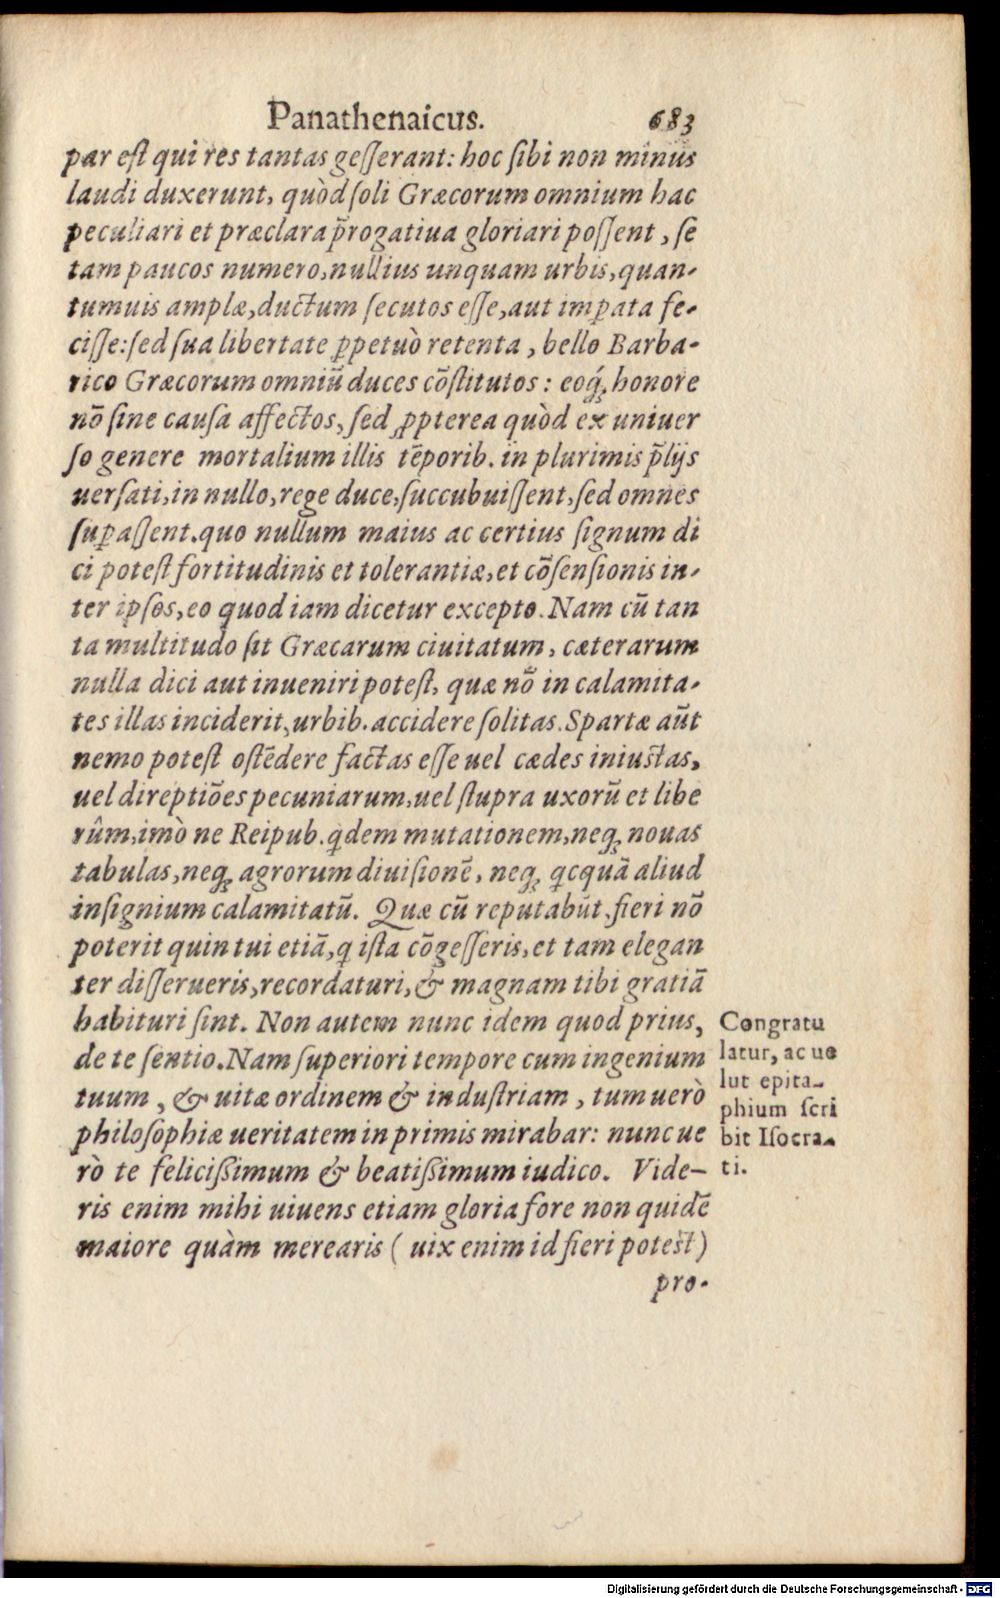 Panathenaicus. 683
par eſt qui res tantas geſſerant: hoc ſibi non minus
laudi duxerunt, quòd ſoli Græcorum omnium hac
peculiari et præclara p̃rogatiua gloriari poſſent, ſe
tam paucos numero, nullius unquam urbis, quan-
tumuis amplæ, ductum ſecutos eſſe, aut imꝑata fe-
ciſſe: ſed ſua libertate ꝑpetuò retenta, bello Barba-
rico Græcorum omniũ duces cõſtitutos: eoq́ꝫ honore
nõ ſine cauſa affectos, ſed ꝓpterea quòd ex uniuer
ſo genere mortalium illis tẽporib. in plurimis p̃lijs
uerſati, in nullo, rege duce, ſuccubuiſſent, ſed omnes
ſuꝑaſſent. quo nullum maius ac certius ſignum di
ci poteſt fortitudinis et tolerantiæ, et cõſenſionis in-
ter ipſos, eo quod iam dicetur excepto. Nam cũ tan
ta multitudo ſit Græcarum ciuitatum, cæterarum
nulla dici aut inueniri poteſt, quæ nõ in calamita-
tes illas inciderit, urbib. accidere ſolitas. Spartæ aũt
nemo poteſt oſtẽdere factas eſſe uel cædes iniustas,
uel direptiões pecuniarum, uel ſtupra uxorũ et libe
rûm, imò ne Reipub. q̇dem mutationem, neqꝫ nouas
tabulas, neqꝫ agrorum diuiſionẽ, neqꝫ q̇cquã aliud
inſignium calamitatũ. Quæ cũ reputabũt, fieri nõ
poterit quin tui etiã, q̇ iſta cõgeſſeris, et tam elegan
ter diſſerueris, recordaturi, & magnam tibi gratiã
habituri ſint. Non autem nunc idem quod prius,
de te ſentio. Nam ſuperiori tempore cum ingenium
tuum, & uitæ ordinem & induſtriam, tum uerò
philoſophiæ ueritatem in primis mirabar: nunc ue
rò te feliciſſimum & beatiſſimum iudico. Vide-
ris enim mihi uiuens etiam gloria fore non quidẽ
maiore quàm merearis (uix enim id fieri potest)
pro-
Congratu
latur, ac ue
lut epita-
phium ſcri
bit Iſocra-
ti.
Digitalisierung gefördert durch die Deutsche Forschungsgemeinschaft - DFG